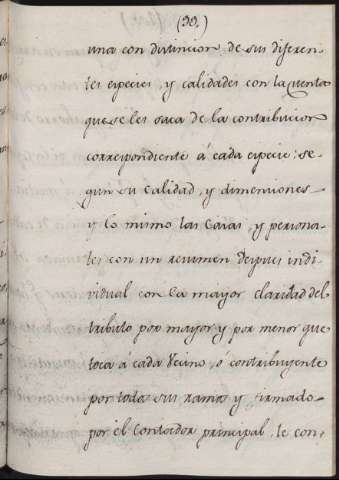 (39.)
una con distincion de sus diferen-
tes especies y calidades con la cuenta
que se les saca de la contribucion
correspondiente á cada especie: se-
gun su calidad, y dimensiones
y lo mismo las casas, y persona-
les con un resumen despues indi-
vidual con la mayor claridad del
tributo por mayor y por menor que
toca á cada vecino, ó contribuyente
por todos sus ramos y firmado
por el Contador principal, le con-